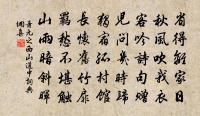 省得離家日
秋風吹我衣
客吟詩句
兒問幾時歸
獨宿孤村館
長懷舊竹扉
羈愁不堪觸
山雨暗斜暉
元之西山道中詞典
網集